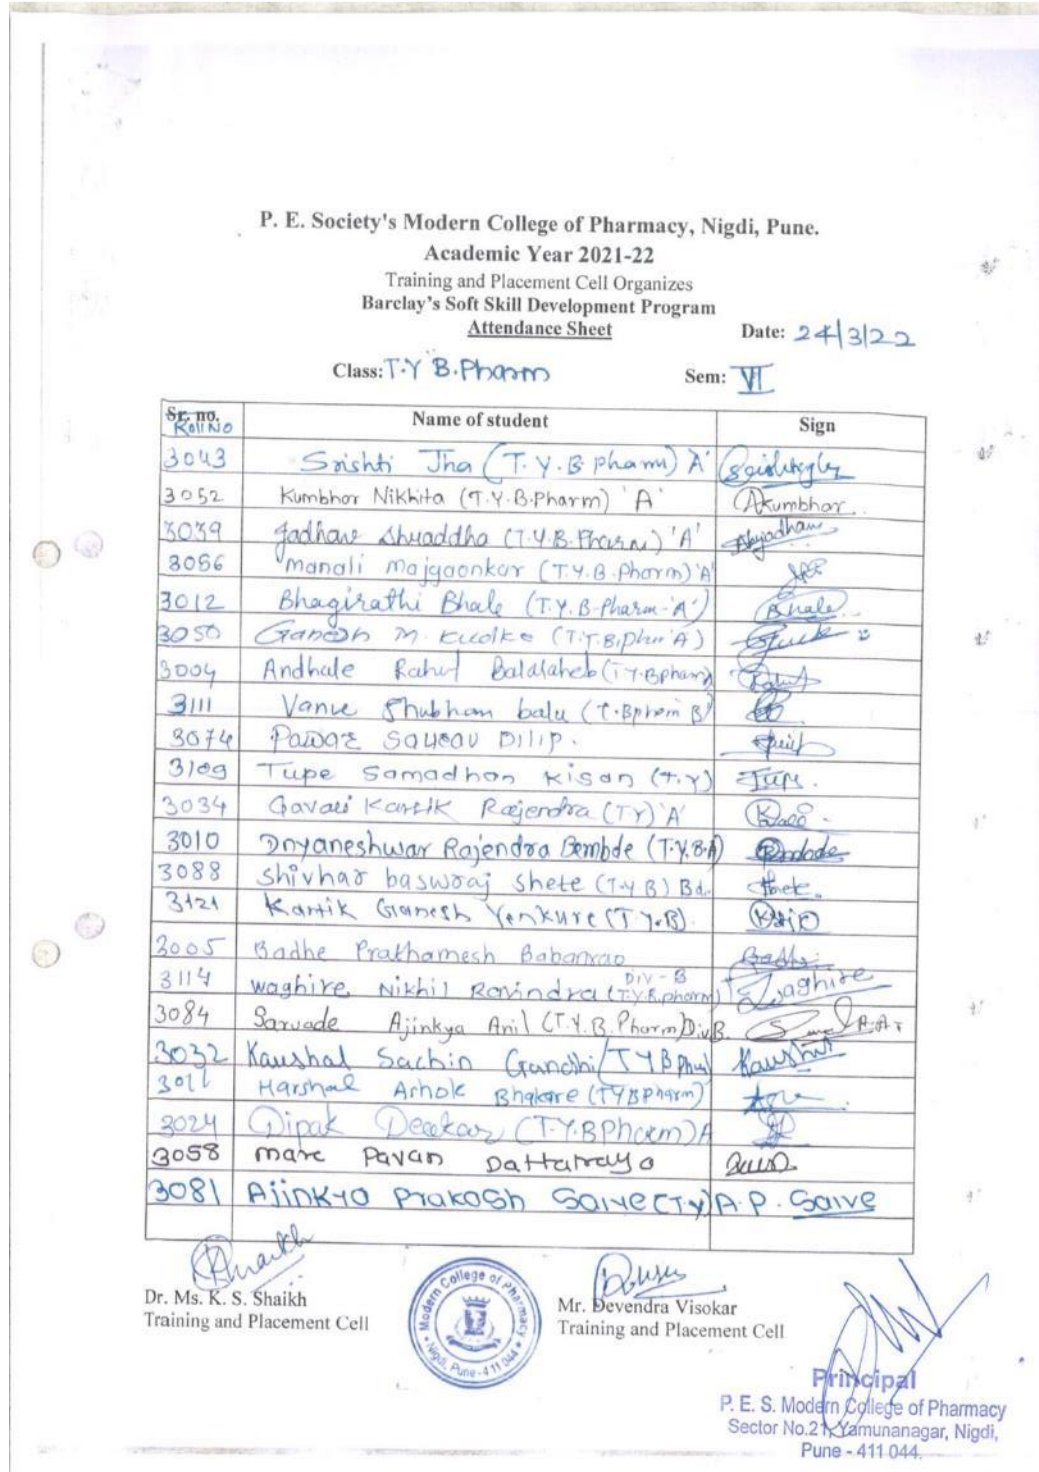 P. E. Society's Modern College of Pharmacy, Nigdi, Pune.
Academic Year 2021-22
Training and Placement Cell Organizes
Barclay's Soft Skill Development Program
Attendance Sheet
Date: 24/3/22
Class: T.Y B.Pharm Sem: VI
Sr. no. Roll No Name of student Sign
3043 Srishti Jha (T.Y.B pharm) 'A'
3052 Kumbhar Nikhita (T.Y.B.Pharm) 'A' Akumbhar
3039 Jadhav Shraddha (T.Y.B.Pharm) 'A'
3056 Manali Majgaonkar (T.Y.B.Pharm) 'A'
3012 Bhagirathi Bhale (T.Y.B-Pharm-'A') Bhale
3050 Ganesh M.
3004 Andhale Rahul Balasaheb (T.Y.Bpharm)
3111 Shubham balu (T.Bpharm B)
3074 Pawar Saurav Dilip.
3109 Tupe Samadhan Kisan (T.Y) Tupe.
3034 Gavali Kartik Rajendra (TY) 'A'
3010 Dnyaneshwar Rajendra Bembde (T.Y.B.A)
3088 Shivhar baswraj Shete (T.Y B) Shete.
3121 Kartik Ganesh Yenkure (T.Y.B).
3005 Badhe Prathamesh Babanrao Badhe
3114 Waghire Nikhil Ravindra (T.Y.B.pharm) DIV-B Waghire
3084 Sarvade Ajinkya Anil (T.Y.B.Pharm) Div B.
3032 Kaushal Sachin Gandhi (TYB Kaushal
Harshal Ashok Bhakare (TYBPharm)
3024 Dipak Deokar (T.Y.BPharm) A
3058 Mare Pavan Dattatraya
3081 Ajinkya Prakash Salve (TY) A.P. Salve
Dr. Ms. K. S. Shaikh
Training and Placement Cell
Modern College of Pharmacy
Nigdi, Pune-411 044
Mr. Devendra Visokar
Training and Placement Cell
Principal
P. E. S. Modern College of Pharmacy
Sector No.21, Yamunanagar, Nigdi,
Pune - 411 044.